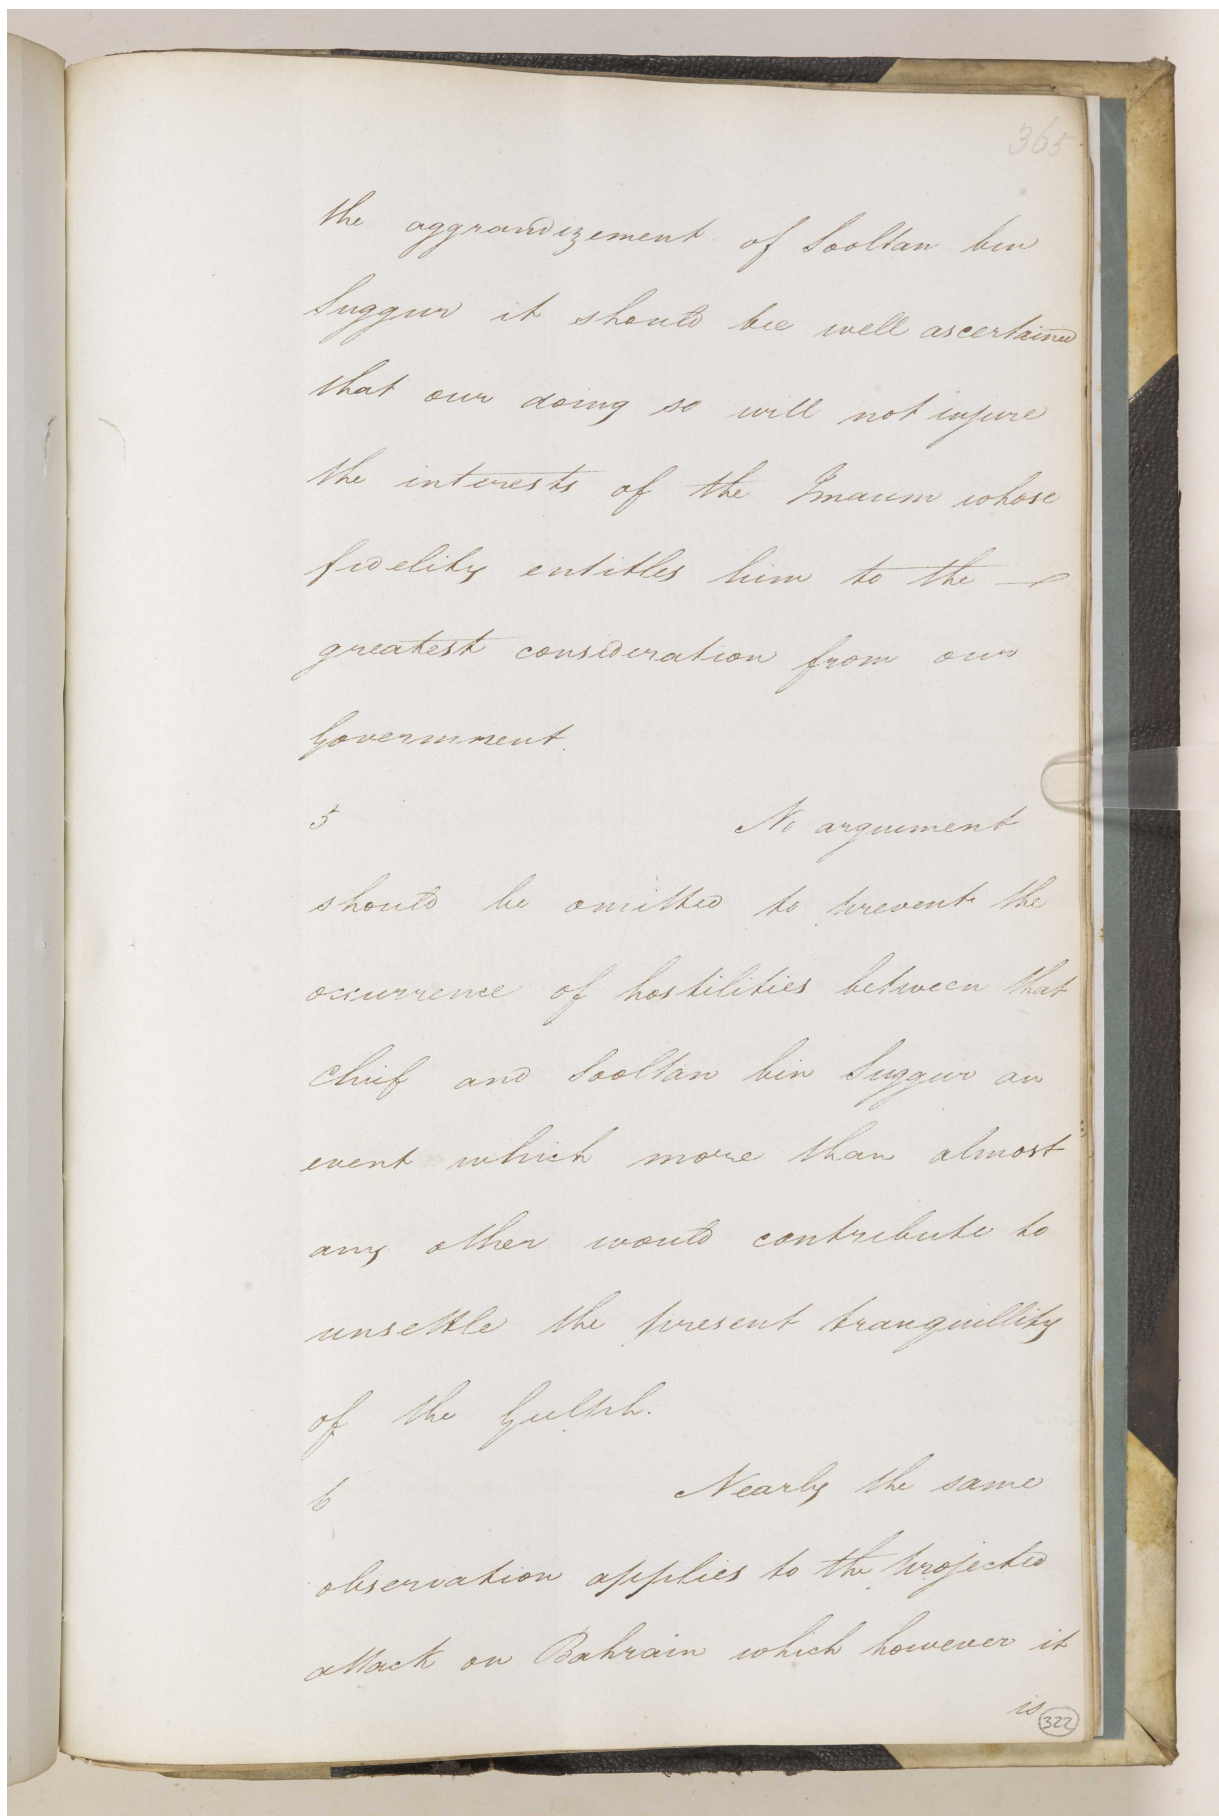 365
the aggrandizement of Sooltan bin
Suggur it should be well ascertained
that our doing so will not injure
the interests of the Imaum whose
fidelity entitles him to the
greatest consideration from our
Government.
5 No argument
should be omitted to prevent the
occurrence of hostilities between that
Chief and Sooltan bin Suggur an
event which more than almost
any other would contribute to
unsettle the present tranquillity
of the Gulph.
6 Nearly the same
observation applies to the projected
attack on Bahrain which however it
is
322